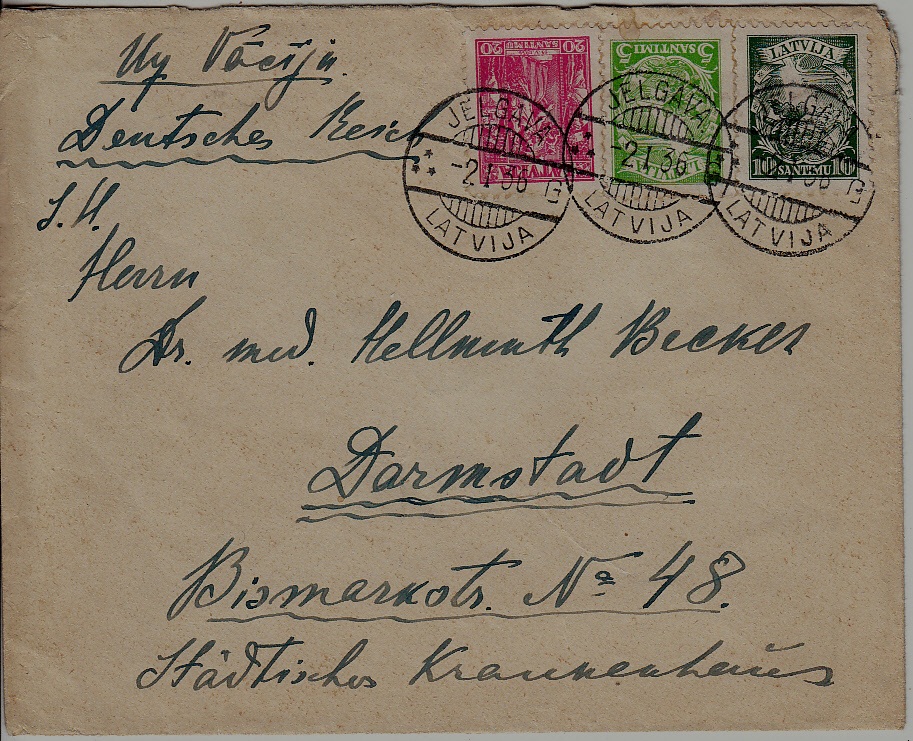 Uz Vāciju.
Deutsches Reich
S. H.
Herrn
Dr. med. Hellmuth Becker
Darmstadt
Bismarkstr. No 48.
Städtisches Krankenhaus
20 SANTIMU 20
LATVIJA
5 SANTIMI 5
LATVIJA
LATVIJA
10 SANTIMU 10
JELGAVA
-2.I.36 G
LATVIJA
JELGAVA
-2.I.36 G
LATVIJA
JELGAVA
36 G
LATVIJA